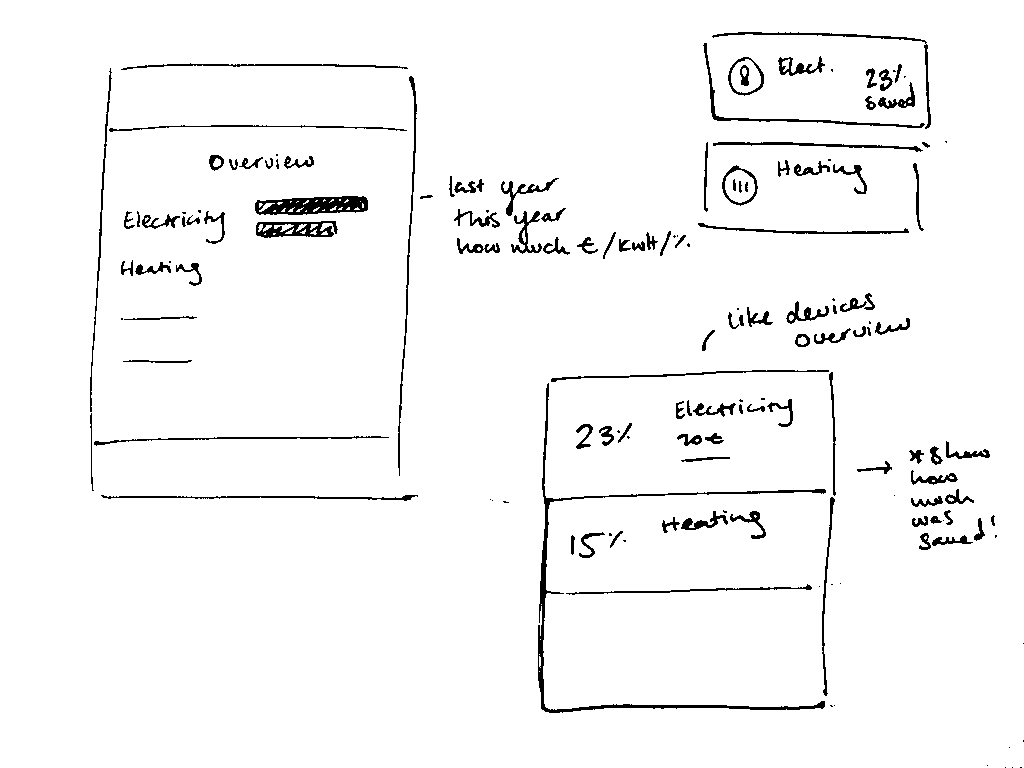 Overview
Electricity
Heating
last year
this year
how much €/kwH/%
Elect.
23%
saved
Heating
like devices
overview
23%
Electricity
20€
15%
Heating
* show
how
much
was
saved!